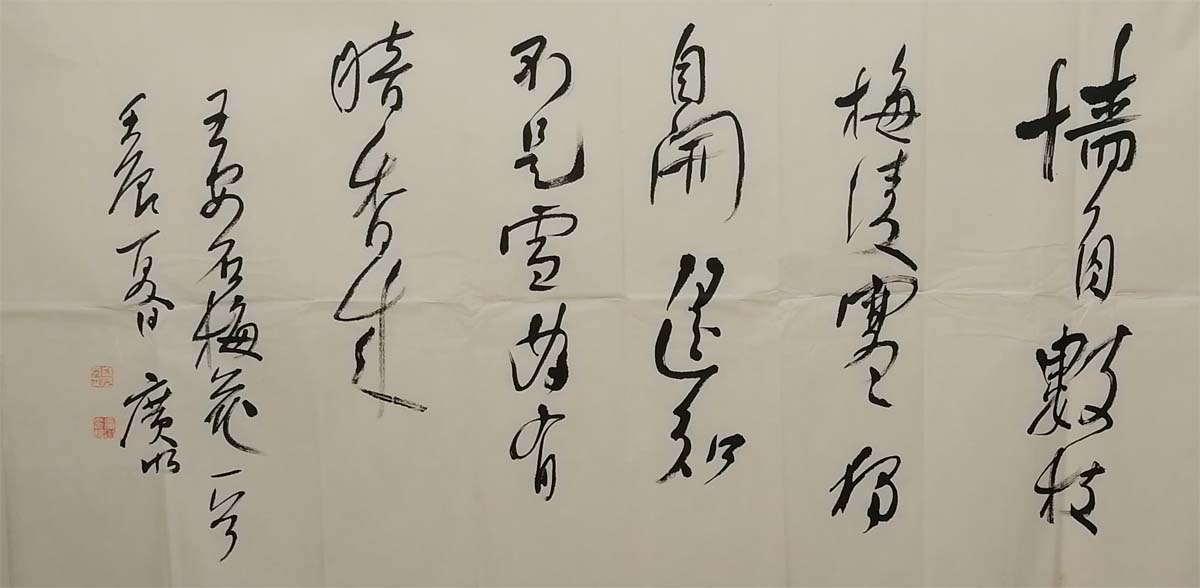 墙角數枝
梅凌寒獨
自開遥知
不是雪為有
暗香来
王安石梅花一首
壬辰夏日廣明